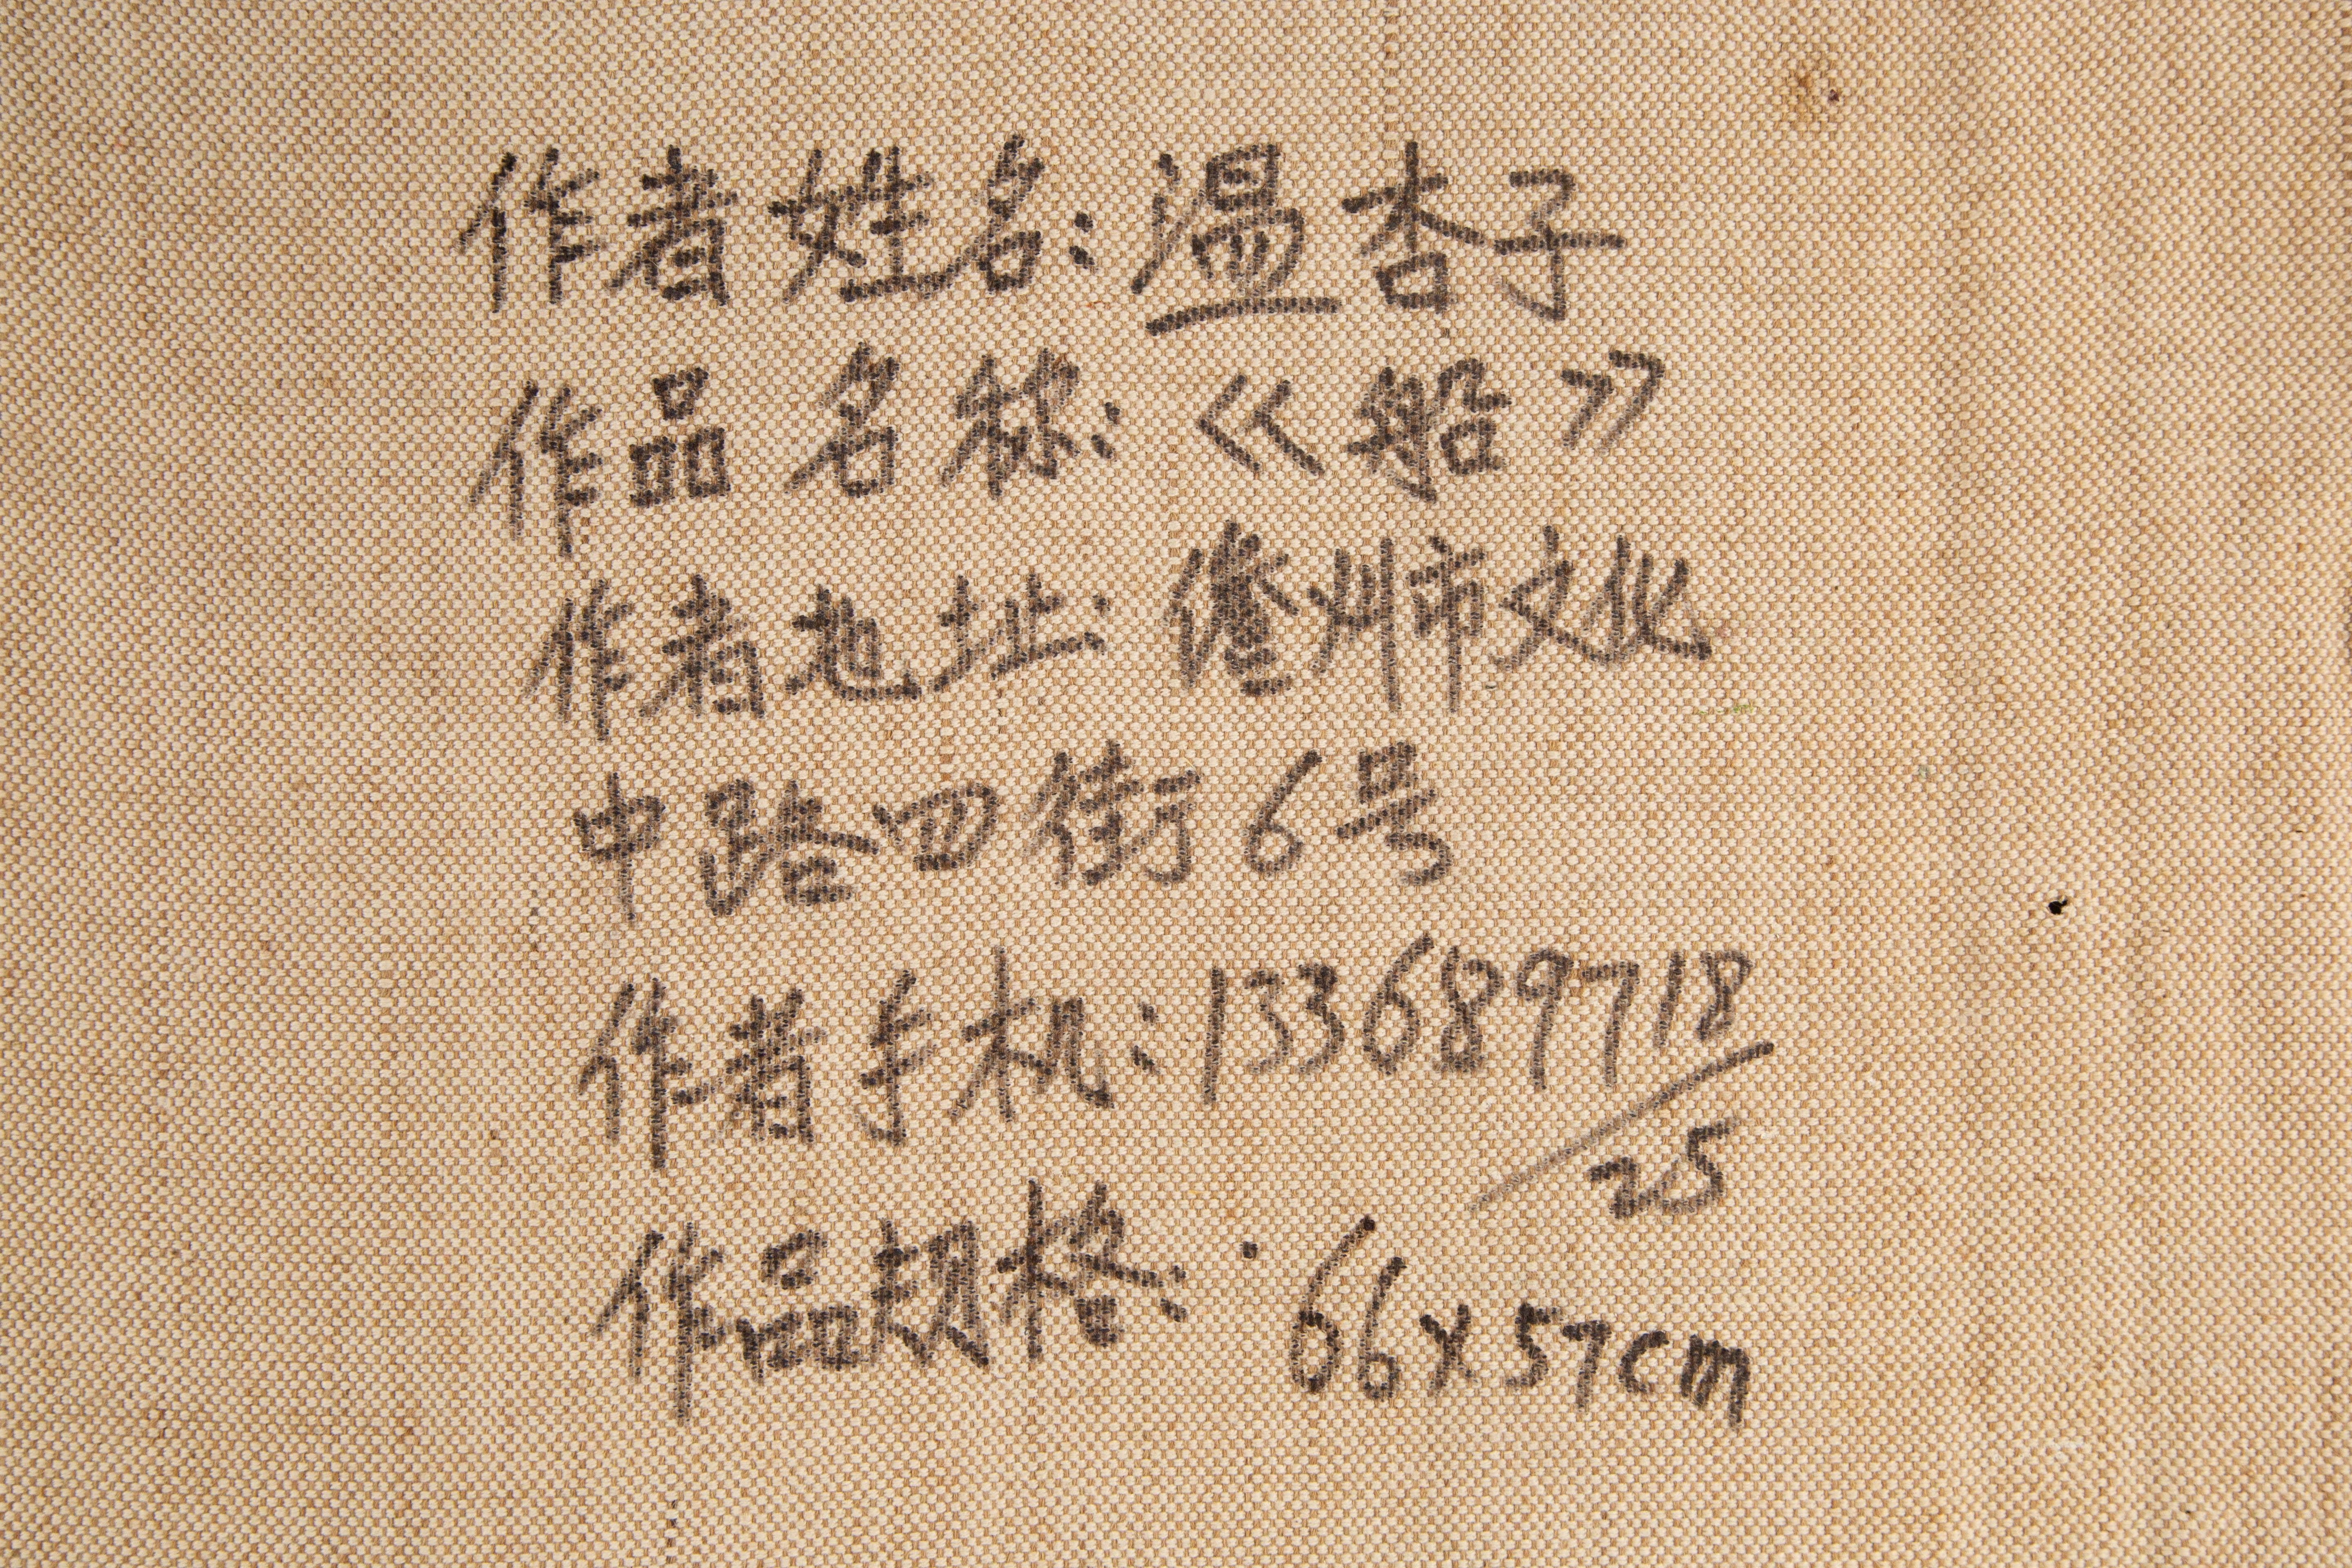 作者姓名:温杏子
作品名称:《船》
作者地址:儋州市文化
中路四街6号
作者手机:133689718
25
作品规格:66x57cm